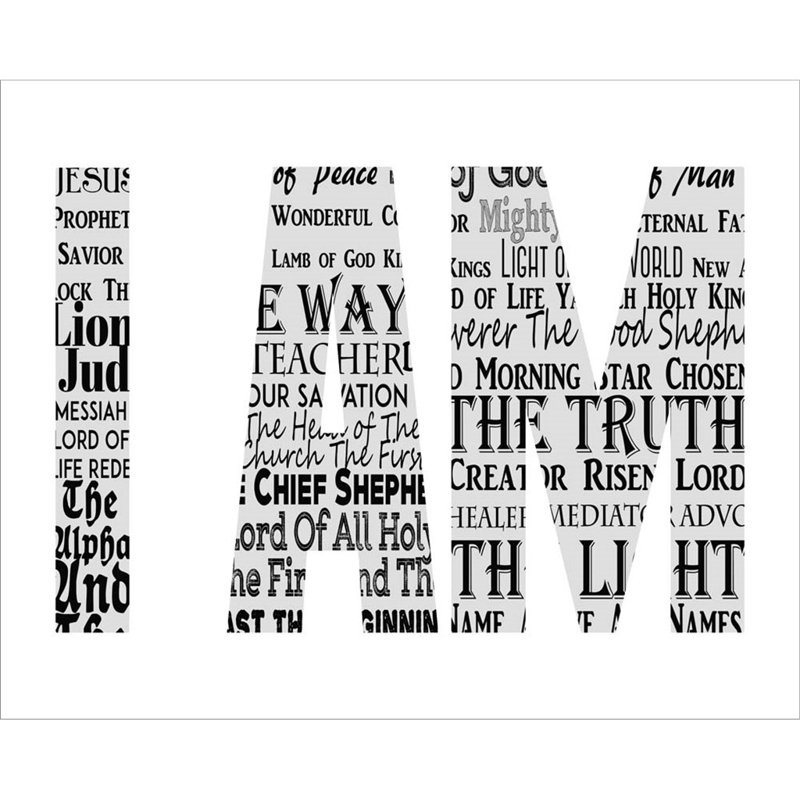 I AM
JESUS of Peace of God of Man
PROPHET WONDERFUL CO OR Mighty ETERNAL FAT
SAVIOR LAMB OF GOD KI KINGS LIGHT O WORLD NEW A
OCK TH E WAY D OF LIFE YA H HOLY KING
Lion TEACHER verer The ood Sheph
Jud OUR SA VATION D MORNING STAR CHOSEN
MESSIAH The He of The THE TRUTH
LORD OF Church The First CREATOR RISEN LORD
LIFE REDE E CHIEF SHEPHE HEALER MEDIATOR ADVO
The Lord Of All Holy TH LIGHT
Alpha he Fir nd Th
And AST TH GINNIN NAME A VE A NAMES
The